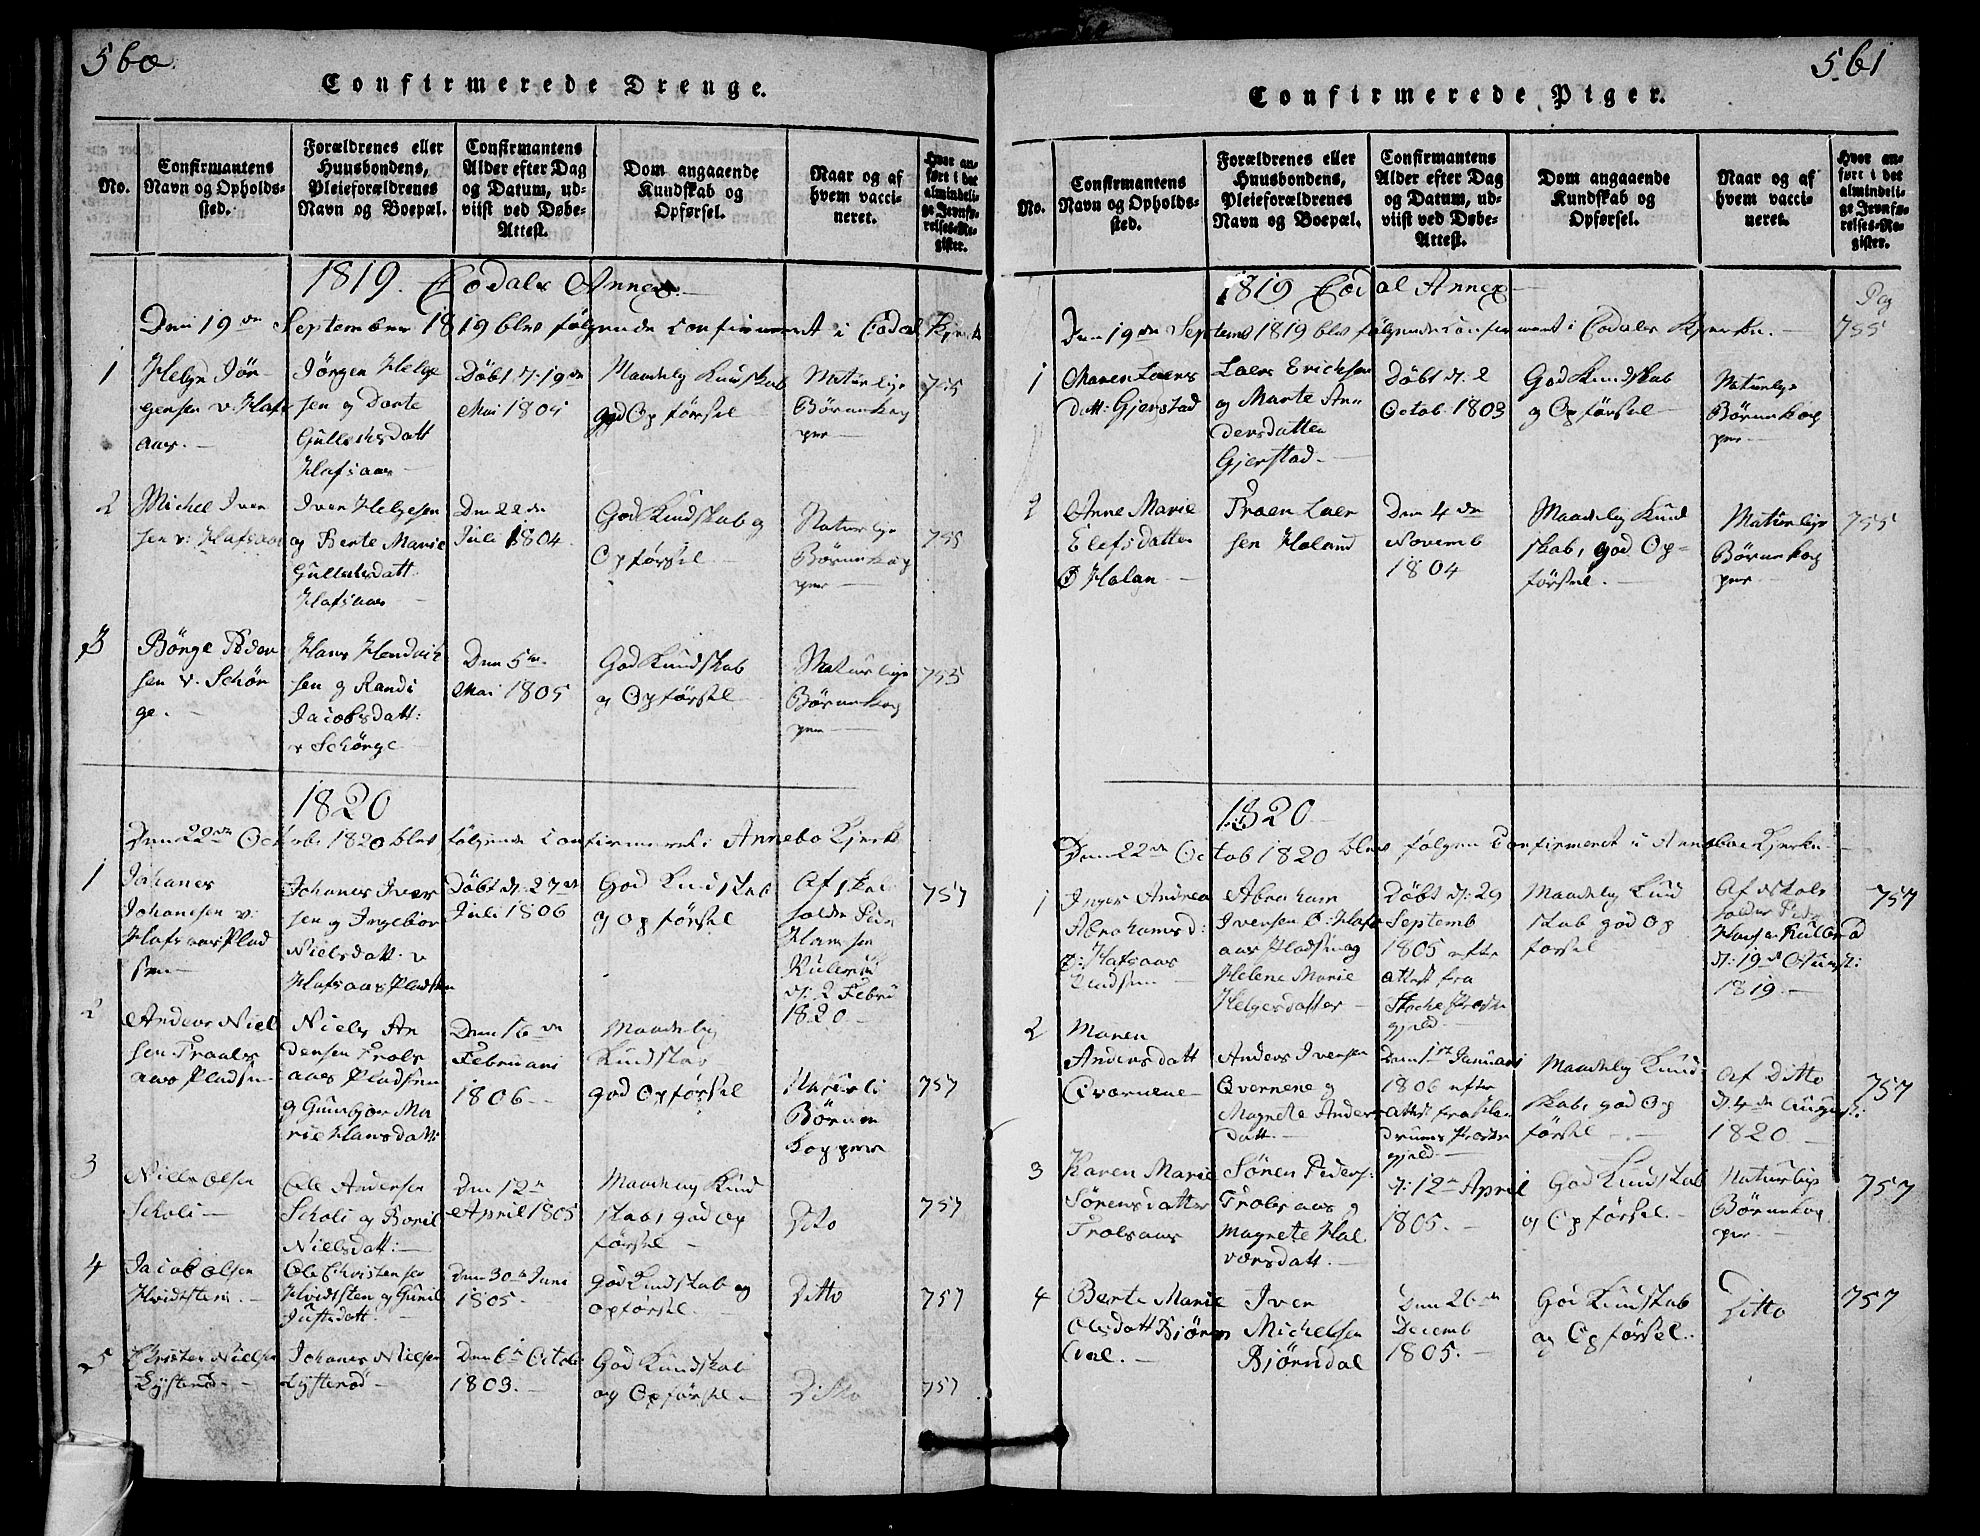 560.
Confirmerede Drenge.
No.
Confirmantens
Navn og Opholds-
sted.
Forældrenes eller
Huusbondens,
Pleieforældrenes
Navn og Boepæl.
Confirmantens
Alder efter Dag
og Datum, ud-
viist ved Døbe-
Attest.
Dom angaaende
Kundskab og
Opførsel.
Naar og af
hvem vacci-
neret.
Hvor an-
ført i det
almindeli-
ge Jevnfø-
relses-Re-
gister.
1819. Annex.
Den 19de September 1819 blev følgende confirmeret i
1
Helge Jör-
gensen v. Hafs
aas.
Jörgen Helge
sen og Dorte
Gulleksdatt
Hafsaas
Döbt d. 19de
Mai 1804
Maadelig Kundskab
god Opförsel
Naturlige
Börnekop
per
755
2
Michel Iver
sen v: Hafsaas
Iver Helgesen
og Berte Marie
Gulleksdatt.
Hafsaas
Den 22de
Juli 1804.
God Kundskab og
Opförsel
Naturlige
Börnekop
per
755
3
Börge Peder
sen v. Schör
ge.
Hans Hendrik
sen og Randi
Jacobsdatt:
v Schörge
Den 5te
Mai 1805
God Kundskab
og Opförsel
Naturlige
Börnekop
per
755
1820
Den 22de Octobr 1820 blev følgende confirmeret i Annebo Kjerk
1
Johanes
Johanesen v:
Hafsaas Plad
sen
Johanes Iver
sen og Ingebor
Nielsdatt. v
Hafsaas Pladsen
Döbt d. 27de
Juli 1806
God Kundskab
og opförsel
Af skole
holder Peder
Hansen
d: 2 Febru
1820
757
2
Anders Niel
sen Traals
aas Pladsen
Niels An
densen Trols
aas Pladsen
og Gunbjor Ma
rie Hansdatt:
Den 16de
Februari
1806
Maadelig
Kundskab
god Opförsel
Naturli
Börne
kopper
757
3
Niels Olsen
Scholi
Ole Andersen
Scholi og Boril
Nielsdatt:
Den 12te
April 1805
Maadelig Kund
skab, god Op
försel
Dito
757
4
Jacob Olsen
Hvidtsten.
Ole Christensen
Hvidtsten og Gunil
Justsdatt.
Den 30te Juni
1805.
God Kundskab og
opförsel.
Ditto
757
5
Christen Nielsen
Lysteröd
Johanes Nielsen
Lysteröd
Den 6te Octob
1803.
God Kundskab
og Opförsel
Ditto
757
561
Confirmerede Piger.
No.
Confirmantens
Navn og Opholds-
sted.
Forældrenes eller
Huusbondens,
Pleieforældrenes
Navn og Boepæl.
Confirmantens
Alder efter Dag
og Datum, ud-
viist ved Døbe-
Attest.
Dom angaaende
Kundskab og
Opførsel.
Naar og af
hvem vacci-
neret.
Hvor an-
ført i det
almindeli-
ge Jevnfø-
relses-Re-
gister.
1819 Annex
Pag
Den 19de Septemb 1819 blev følgende confirmeret i Kjerke.
755
1
Maren Laers
datt: Gjerstad
Laers Ericksen
og Marte An
dersdatter
Gjerstad.
Döbt d. 2
Octob. 1803
God Kundskab
og Opförsel
Naturlige
Börnekop
per
2
Anne Marie
Elefsdatter
Ø Holan
Traen Laer
sen Holand
Den 4de
Novemb
1804
Maadelig Kund
skab, god Op-
försel.
Naturlige
Börnekop
per
755
1820
Den 22de Octob 1820 blev følgen Confirmeret i Annebo Kjerke
1
Inger Andrea
Abrahamsd:
Ø: Hafsaas
Pladsen
Abraham
Iversen Ø: Hafs
aas Pladsen og
Helene Marie
Helgesdatter
Döbt d: 29
Septemb
1805 efter
attest fra
Stocke Præste
gjeld.
Maadelig Kund
skab god Op
försel
Af skole
holder Peder
Hansen Rullerød
d: 19de
1819.
757
2
Maren
Andersdatt
Qvernene
Anders Iversen
Qvernene og
Magrete Anders
datt.
Den 1st Januari
1806 efter
attest fra Slan
drums Præste
gjeld.
Maadelig Kund
skab, god Op
försel
Af Ditto
d: 4de August:
1820
757
3
Karen Marie
Sörensdatter
Trolsaas
Sören Peders:
Trolsaas og
Magrete Hal
vorsdatt.
d: 12te April
1805.
God Kundskab
og Opförsel.
Naturlige
Börnekop
per
757
4
Berte Marie
Olsdatt Björn
dal.
Iver
Michelsen
Björndal
Den 26de
Decemb
1805.
God Kundskab
og Opförsel.
Ditto
757